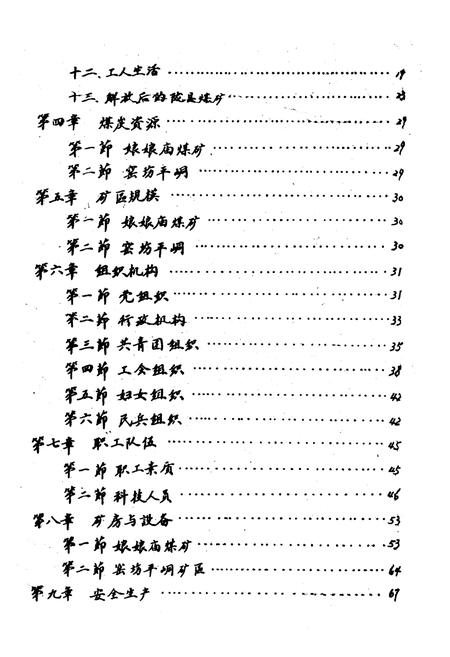 十二、工人生活 ………………………… 19
十三、解放后的陇县煤矿 ………………………… 23
第四章 煤炭资源 ………………………… 29
第一節 娘娘庙煤矿 ………………………… 29
第二節 窑坊平峒 ………………………… 29
第五章 矿区规模 ………………………… 30
第一節 娘娘庙煤矿 ………………………… 30
第二節 窑坊平峒 ………………………… 30
第六章 组织机构 ………………………… 31
第一節 党组织 ………………………… 31
第二節 行政机构 ………………………… 33
第三節 共青团组织 ………………………… 35
第四節 工会组织 ………………………… 38
第五節 妇女组织 ………………………… 42
第六節 民兵组织 ………………………… 42
第七章 职工队伍 ………………………… 45
第一節 职工素质 ………………………… 45
第二節 科技人员 ………………………… 46
第八章 矿房与設备 ………………………… 53
第一節 娘娘庙煤矿 ………………………… 53
第二節 窑坊平峒矿区 ………………………… 64
第九章 安全生产 ………………………… 67